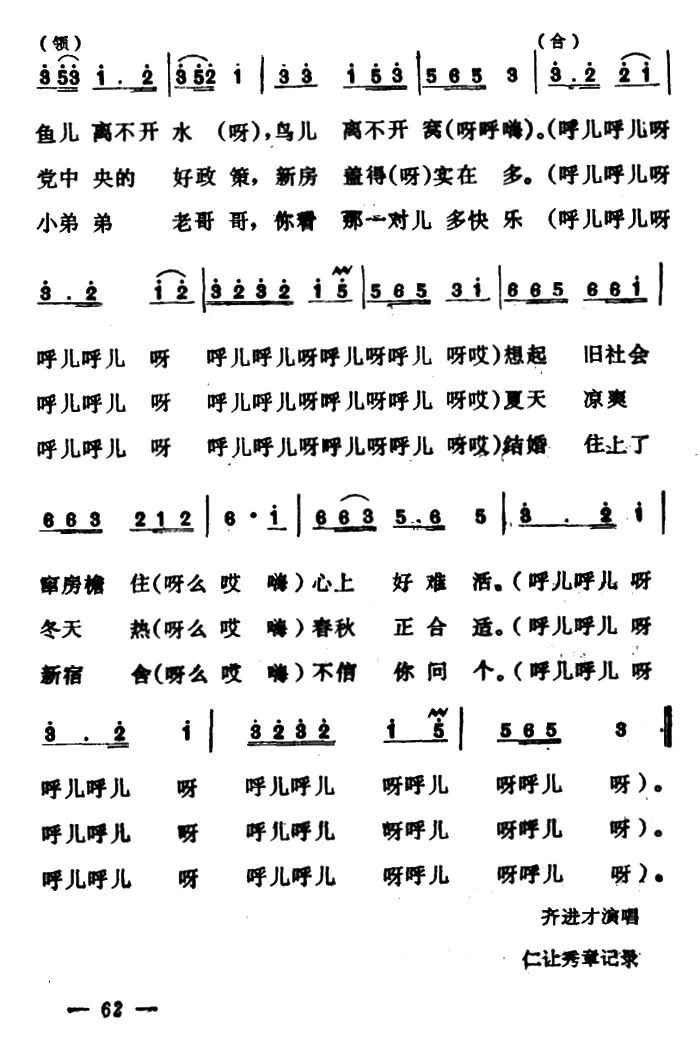 （领） （合）
3 5 3 1 . 2 | 3 5 2 1 | 3 3 1 5 3 | 5 6 5 3 | 3 . 2 2 1 |
鱼儿 离不开 水 （呀），鸟儿 离不开 窝（呀呼嗨）。（呼儿呼儿呀
党中 央的 好政 策，新房 盖得（呀）实在 多。（呼儿呼儿呀
小弟 弟 老哥 哥，你看 那一对儿 多快 乐（呼儿呼儿呀
3 . 2 1 2 | 3 2 3 2 1 5 | 5 6 5 3 1 | 6 6 5 6 6 1 |
呼儿呼儿 呀 呼儿呼儿呀呼儿呀呼儿 呀哎）想起 旧社会
呼儿呼儿 呀 呼儿呼儿呀呼儿呀呼儿 呀哎）夏天 凉爽
呼儿呼儿 呀 呼儿呼儿呀呼儿呀呼儿 呀哎）结婚 住上了
6 6 3 2 1 2 | 6 · 1 | 6 6 3 5 . 6 5 | 3 . 2 1 |
窜房檐 住（呀么 哎 嗨）心上 好难 活。（呼儿呼儿 呀
冬天 热（呀么 哎 嗨）春秋 正合 适。（呼儿呼儿 呀
新宿 舍（呀么 哎 嗨）不信 你问 个。（呼儿呼儿 呀
3 . 2 1 | 3 2 3 2 1 5 | 5 6 5 3 ·
呼儿呼儿 呀 呼儿呼儿 呀呼儿 呀呼儿 呀）。
呼儿呼儿 呀 呼儿呼儿 呀呼儿 呀呼儿 呀）。
呼儿呼儿 呀 呼儿呼儿 呀呼儿 呀呼儿 呀）。
齐进才演唱
仁让秀章记录
— 62 —